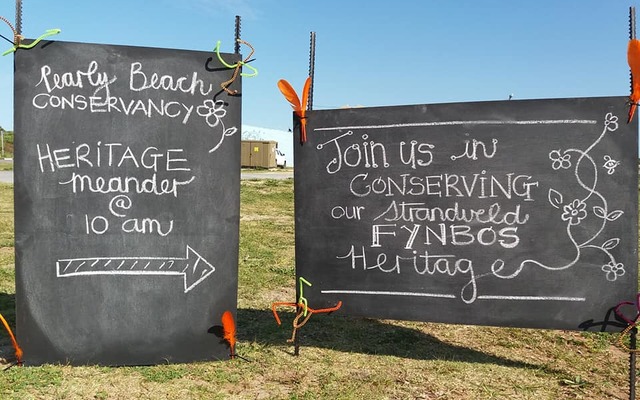 Pearly Beach
CONSERVANCY
HERITAGE
meander
@
10 am
Join us in
CONSERVING
our strandveld
FYNBOS
Heritage